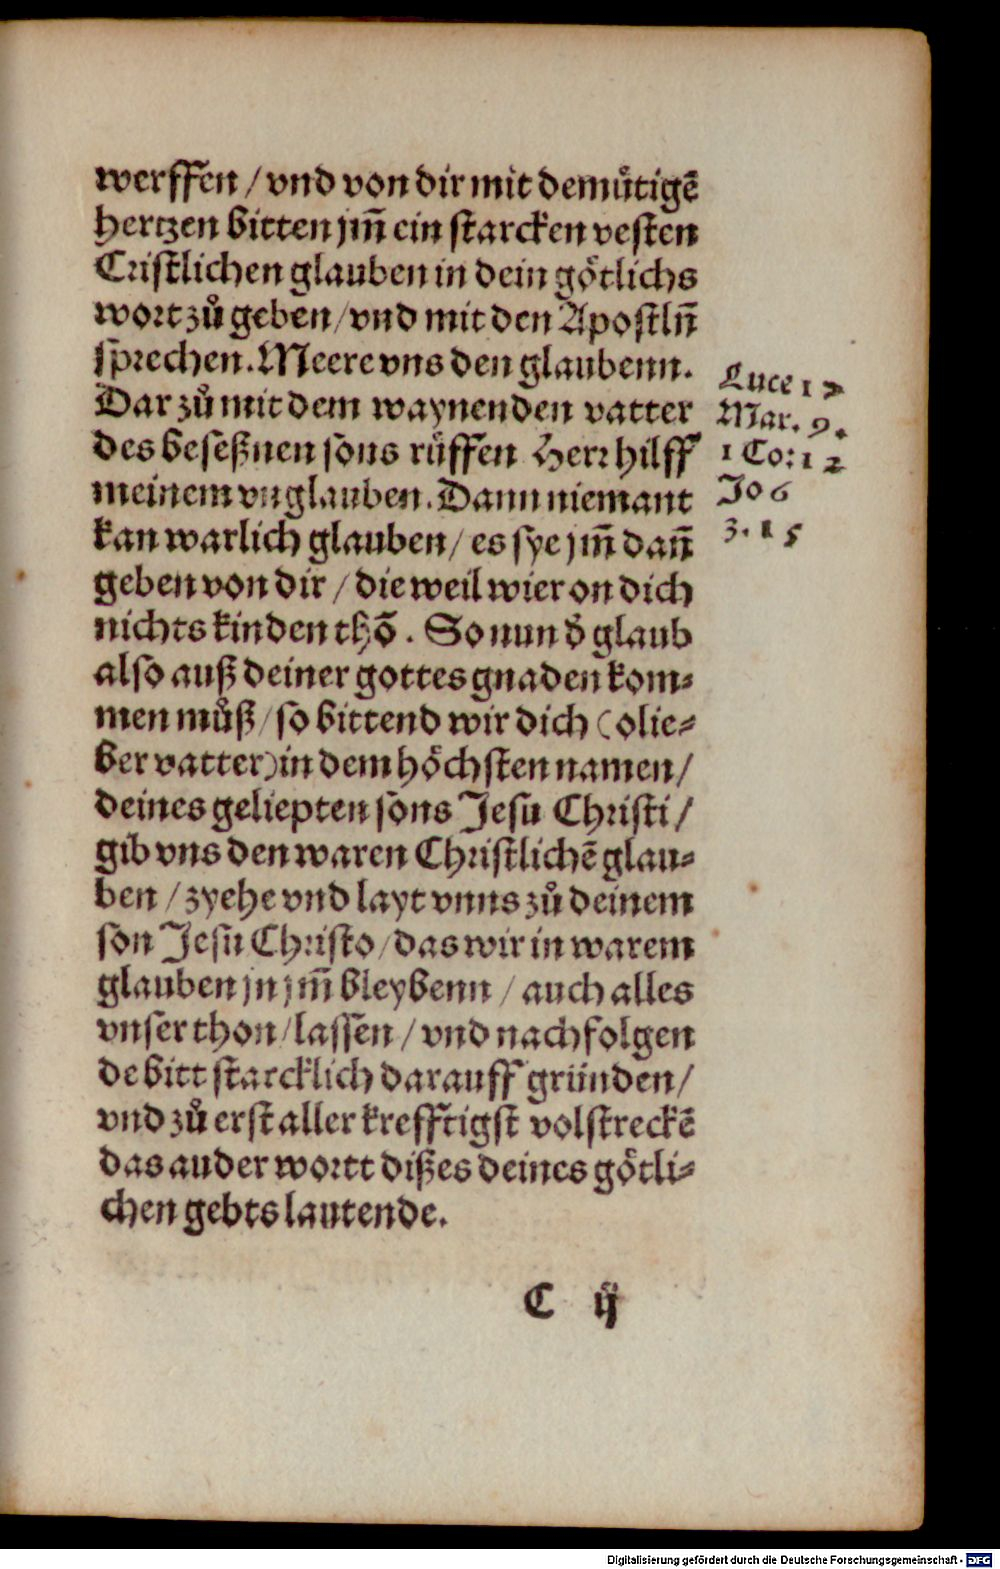 werffen / vnd von dir mit demuͤtigē
hertzen bitten jm̄ ein starcken vesten
Cristlichen glauben in dein goͤtlichs
wort zuͦ geben / vnd mit den Apostln̄
sprechen. Meere vns den glaubenn.
Dar zuͦ mit dem waynenden vatter
des beseßnen sons ruͤffen Herr hilff
meinem vnglauben. Dann niemant
kan warlich glauben / es sye jm̄ dan̄
geben von dir / die weil wier on dich
nichts kinden thō. So nun d̄ glaub
also auß deiner gottes gnaden kom⸗
men muͦß / so bittend wir dich (o lie⸗
ber vatter) in dem hoͤchsten namen /
deines geliepten sons Jesu Christi /
gib vns den waren Christlichē glau⸗
ben / zyehe vnd layt vnns zuͦ deinem
son Jesu Christo / das wir in warem
glauben jn jm̄ bleybenn / auch alles
vnser thon / lassen / vnd nachfolgen
de bitt starcklich darauff gründen /
vnd zuͦ erst aller krefftigst volstreckē
das ander wortt dißes deines goͤtli⸗
chen gebts lautende.
Luce 17
Mar. 9.
1 Co: 12
Jo 6
3. 15
C ij
Digitalisierung gefördert durch die Deutsche Forschungsgemeinschaft - DFG